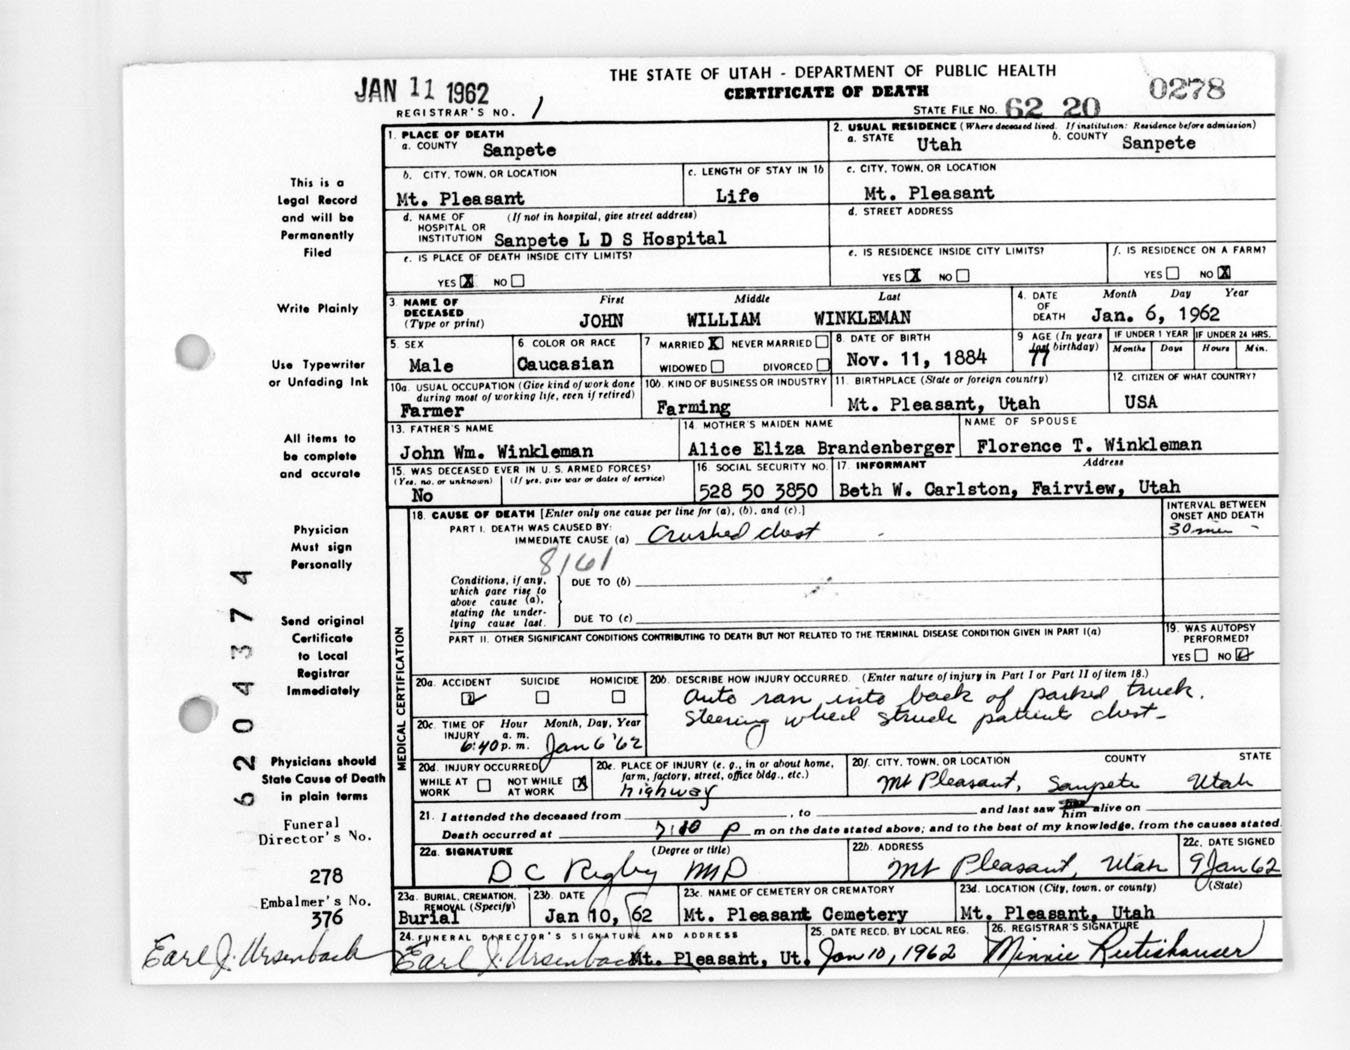 THE STATE OF UTAH - DEPARTMENT OF PUBLIC HEALTH
CERTIFICATE OF DEATH
JAN 11 1962
0278
REGISTRAR'S NO. 1
STATE FILE NO. 62 20
This is a
Legal Record
and will be
Permanently
Filed
Write Plainly
Use Typewriter
or Unfading Ink
All items to
be complete
and accurate
Physician
Must sign
Personally
Send original
Certificate
to Local
Registrar
Immediately
Physicians should
State Cause of Death
in plain terms
Funeral
Director's No.
278
Embalmer's No.
376
Earl J. Ursenbach
6204374
1. PLACE OF DEATH
a. COUNTY Sanpete
2. USUAL RESIDENCE (Where deceased lived. If institution: Residence before admission)
a. STATE Utah b. COUNTY Sanpete
b. CITY, TOWN, OR LOCATION Mt. Pleasant
c. LENGTH OF STAY IN 1b Life
c. CITY, TOWN, OR LOCATION Mt. Pleasant
d. NAME OF HOSPITAL OR INSTITUTION (If not in hospital, give street address) Sanpete L D S Hospital
d. STREET ADDRESS
e. IS PLACE OF DEATH INSIDE CITY LIMITS? YES X NO
e. IS RESIDENCE INSIDE CITY LIMITS? YES X NO
f. IS RESIDENCE ON A FARM? YES NO X
3. NAME OF DECEASED (Type or print) First Middle Last
JOHN WILLIAM WINKLEMAN
4. DATE OF DEATH Month Day Year
Jan. 6, 1962
5. SEX Male
6 COLOR OR RACE Caucasian
7 MARRIED X NEVER MARRIED
WIDOWED DIVORCED
8. DATE OF BIRTH Nov. 11, 1884
9 AGE (In years last birthday) 77
IF UNDER 1 YEAR Months Days
IF UNDER 24 HRS. Hours Min.
10a. USUAL OCCUPATION (Give kind of work done during most of working life, even if retired) Farmer
10b. KIND OF BUSINESS OR INDUSTRY Farming
11. BIRTHPLACE (State or foreign country) Mt. Pleasant, Utah
12. CITIZEN OF WHAT COUNTRY? USA
13. FATHER'S NAME John Wm. Winkleman
14. MOTHER'S MAIDEN NAME Alice Eliza Brandenberger
NAME OF SPOUSE Florence T. Winkleman
15. WAS DECEASED EVER IN U. S. ARMED FORCES?
(Yes, no, or unknown) (If yes, give war or dates of service)
No
16. SOCIAL SECURITY NO. 528 50 3850
17. INFORMANT Address
Beth W. Carlston, Fairview, Utah
MEDICAL CERTIFICATION
18. CAUSE OF DEATH [Enter only one cause per line for (a), (b), and (c).]
INTERVAL BETWEEN ONSET AND DEATH
PART I. DEATH WAS CAUSED BY:
IMMEDIATE CAUSE (a) Crushed chest 30 min
8161
Conditions, if any, which gave rise to above cause (a), stating the underlying cause last.
DUE TO (b)
DUE TO (c)
PART II. OTHER SIGNIFICANT CONDITIONS CONTRIBUTING TO DEATH BUT NOT RELATED TO THE TERMINAL DISEASE CONDITION GIVEN IN PART I(a)
19. WAS AUTOPSY PERFORMED?
YES NO
20a. ACCIDENT SUICIDE HOMICIDE
20b. DESCRIBE HOW INJURY OCCURRED. (Enter nature of injury in Part I or Part II of item 18.)
Auto ran into back of parked truck.
Steering wheel struck patients chest-
20c. TIME OF INJURY Hour Month, Day, Year
a. m.
6:40 p. m. Jan 6 '62
20d. INJURY OCCURRED
WHILE AT WORK NOT WHILE AT WORK X
20e. PLACE OF INJURY (e. g., in or about home, farm, factory, street, office bldg., etc.)
highway
20f. CITY, TOWN, OR LOCATION COUNTY STATE
Mt Pleasant, Sanpete Utah
21. I attended the deceased from , to and last saw him alive on
Death occurred at 7:10 P m on the date stated above; and to the best of my knowledge, from the causes stated.
22a. SIGNATURE (Degree or title)
D C Rigby MD
22b. ADDRESS
Mt Pleasant, Utah
22c. DATE SIGNED
9 Jan 62
23a. BURIAL, CREMATION, REMOVAL (Specify) Burial
23b. DATE Jan 10, 62
23c. NAME OF CEMETERY OR CREMATORY Mt. Pleasant Cemetery
23d. LOCATION (City, town, or county) (State)
Mt. Pleasant, Utah
24. FUNERAL DIRECTOR'S SIGNATURE AND ADDRESS
Earl J. Ursenbach Mt. Pleasant, Ut.
25. DATE RECD. BY LOCAL REG.
Jan 10, 1962
26. REGISTRAR'S SIGNATURE
Minnie Rutishauser